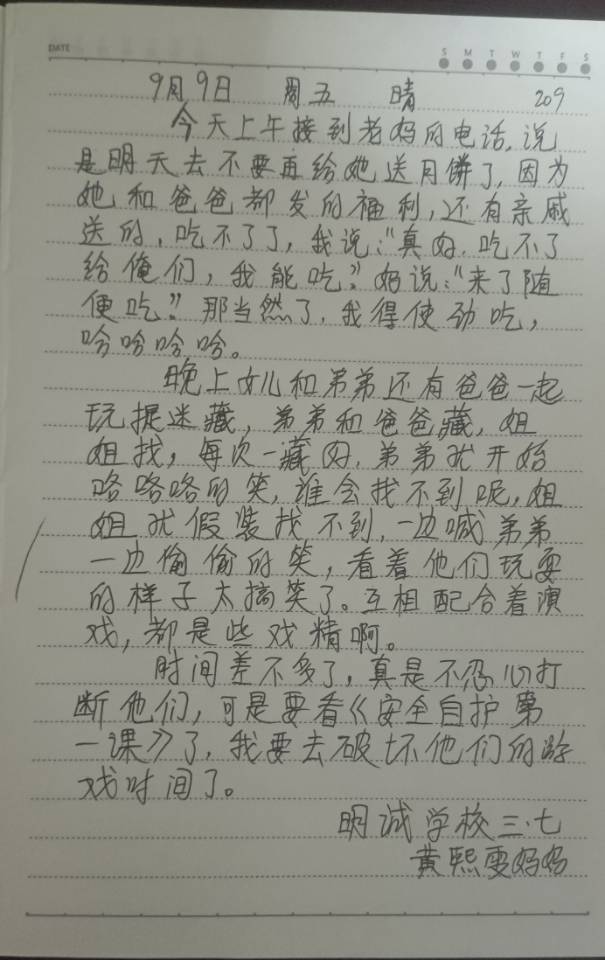 DATE
S M T W T F S
9月9日 周五 晴 209
今天上午接到老妈的电话,说
是明天去不要再给她送月饼了,因为
她和爸爸都发的福利,还有亲戚
送的,吃不了了,我说:“真好,吃不了
给俺们,我能吃。”妈说:“来了随
便吃。”那当然了,我得使劲吃,
哈哈哈哈。
晚上女儿和弟弟还有爸爸一起
玩捉迷藏,弟弟和爸爸藏,姐
姐找,每次一藏好,弟弟就开始
咯咯咯的笑,谁会找不到呢,姐
姐就假装找不到,一边喊弟弟
一边偷偷的笑,看着他们玩耍
的样子太搞笑了。互相配合着演
戏,都是些戏精啊。
时间差不多了,真是不忍心打
断他们,可是要看《安全自护第
一课》了,我要去破坏他们的游
戏时间了。
明诚学校三.七
黄熙雯妈妈